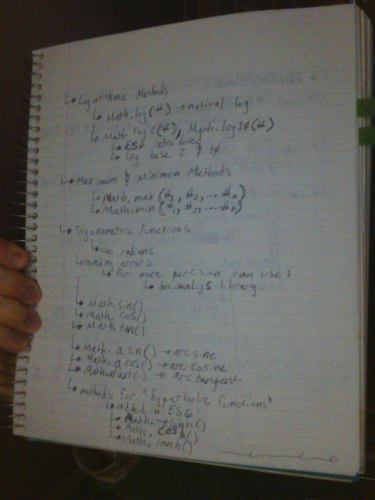 ↳ Logarithmic Methods
↳ Math.log(#) → natural log
↳ Math.log2(#), Math.log10(#)
↳ ES6 introduced
↳ log base 2 & 10
↳ Maximum & Minimum Methods
↳ Math.max(#1, #2, ... #n)
↳ Math.min(#1, #2, ... #n)
↳ Trigonometric Functions
↳ use radians
↳ rounding errors
↳ for more percision can use:
↳ decimal.js library
↳ Math.sin()
↳ Math.cos()
↳ Math.tan()
↳ Math.asin() → arcsine
↳ Math.acos() → arc cosine
↳ Math.atan() → arc tangent
↳ methods for "hyperbolic functions"
↳ added in ES6
↳ Math.sinh()
↳ Math.cosh()
↳ Math.tanh()